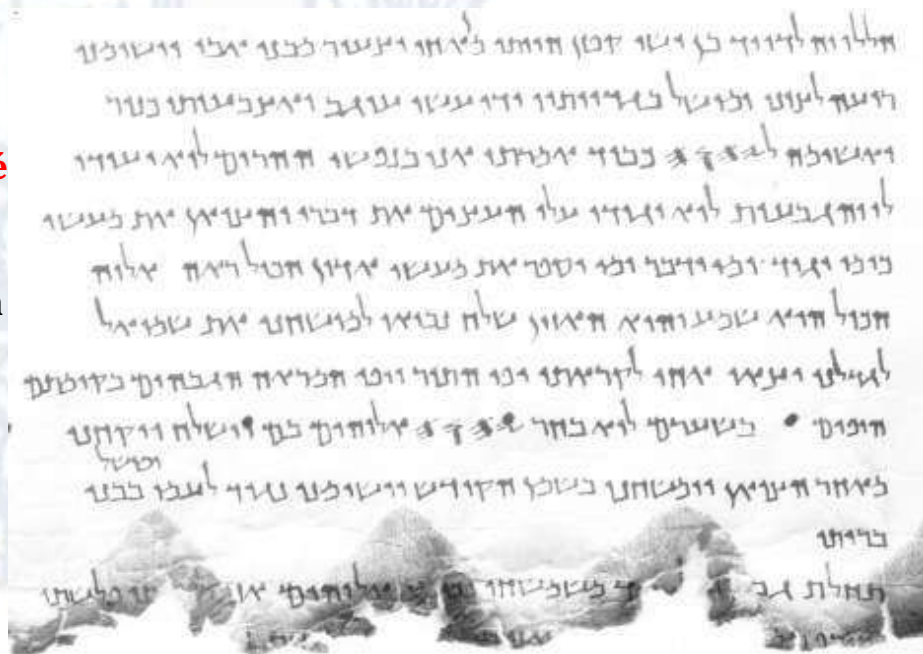 הללויה לדויד בן ישי קטן הייתי מאחי וצעיר מבני אבי וישימני
רועה לצונו ומושל בגדיותיו ידי עשו עוגב ואצבעותי כנור
ואשימה ל𐤉𐤄𐤅𐤄 כבוד אמרתי אני בנפשי ההרים לוא יעידו
לי והגבעות לוא יגידו עלו העצים את דברי והצואן את מעשי
כי מי יגיד ומי ידבר ומי יספר את מעשי אדון הכול ראה אלוה
הכול הוא שמע והוא האזין שלח נביאו למושחני את שמואל
לגדלני יצאו אחי לקראתו יפי התור ויפי המראה הגבהים בקומתם
היפים בשערם לוא בחר 𐤉𐤄𐤅𐤄 אלוהים בם וישלח ויקחני
ומושל
מאחר הצואן וימשחני בשמן הקודש וישימני נגיד לעמו בבני
בריתו
תחלת משמשחו אלוהים פלשתי
é